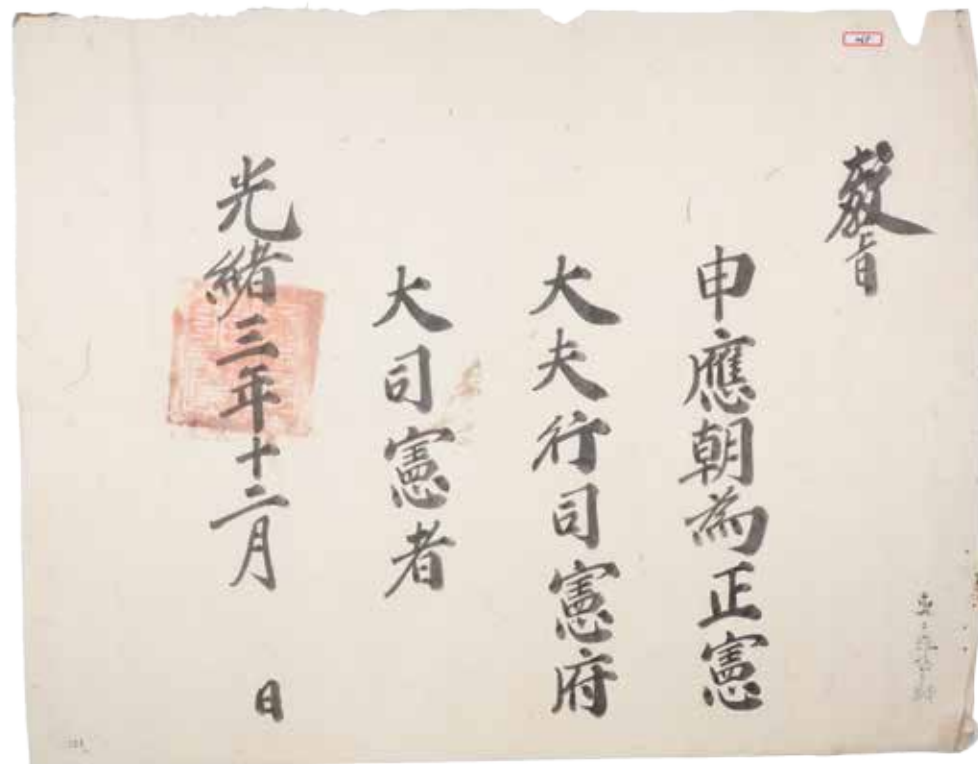 敎旨
申應朝為正憲
大夫行司憲府
大司憲者
光緖三年十二月 日